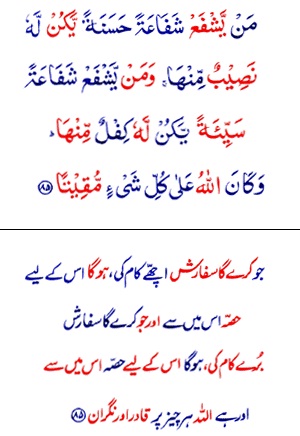 مَنْ يَّشْفَعْ شَفَاعَةً حَسَنَةً يَّكُنْ لَّهٗ
نَصِيْبٌ مِّنْهَا ۚ وَمَنْ يَّشْفَعْ شَفَاعَةً
سَيِّئَةً يَّكُنْ لَّهٗ كِفْلٌ مِّنْهَا ؕ
وَكَانَ اللّٰهُ عَلٰى كُلِّ شَىْءٍ مُّقِيْتًا ﴿۸۵﴾
جو کرے گا سفارش اچھّے کام کی، ہو گا اس کے لیے
حصّہ اس میں سے اور جو کرے گا سفارش
بُرے کام کی، ہوگا اس کے لیے حصّہ اس میں سے
اور ہے اللہ ہر چیز پر قادر اور نگران ﴿۸۵﴾